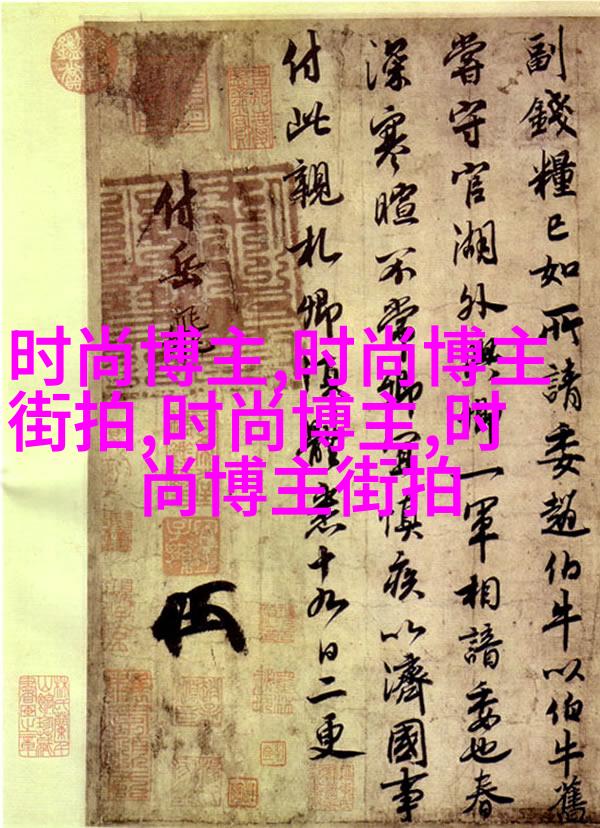 时尚博主,时尚博主
街拍,时尚博主,时
尚博主街拍
副錢糧已如所請委趙伯牛以伯牛舊
嘗守官湖外與卿一軍相諳委也春
深寒暄不常卿宜慎疾以濟國事
付此親札卿須體悉十九日二更
付岳飛